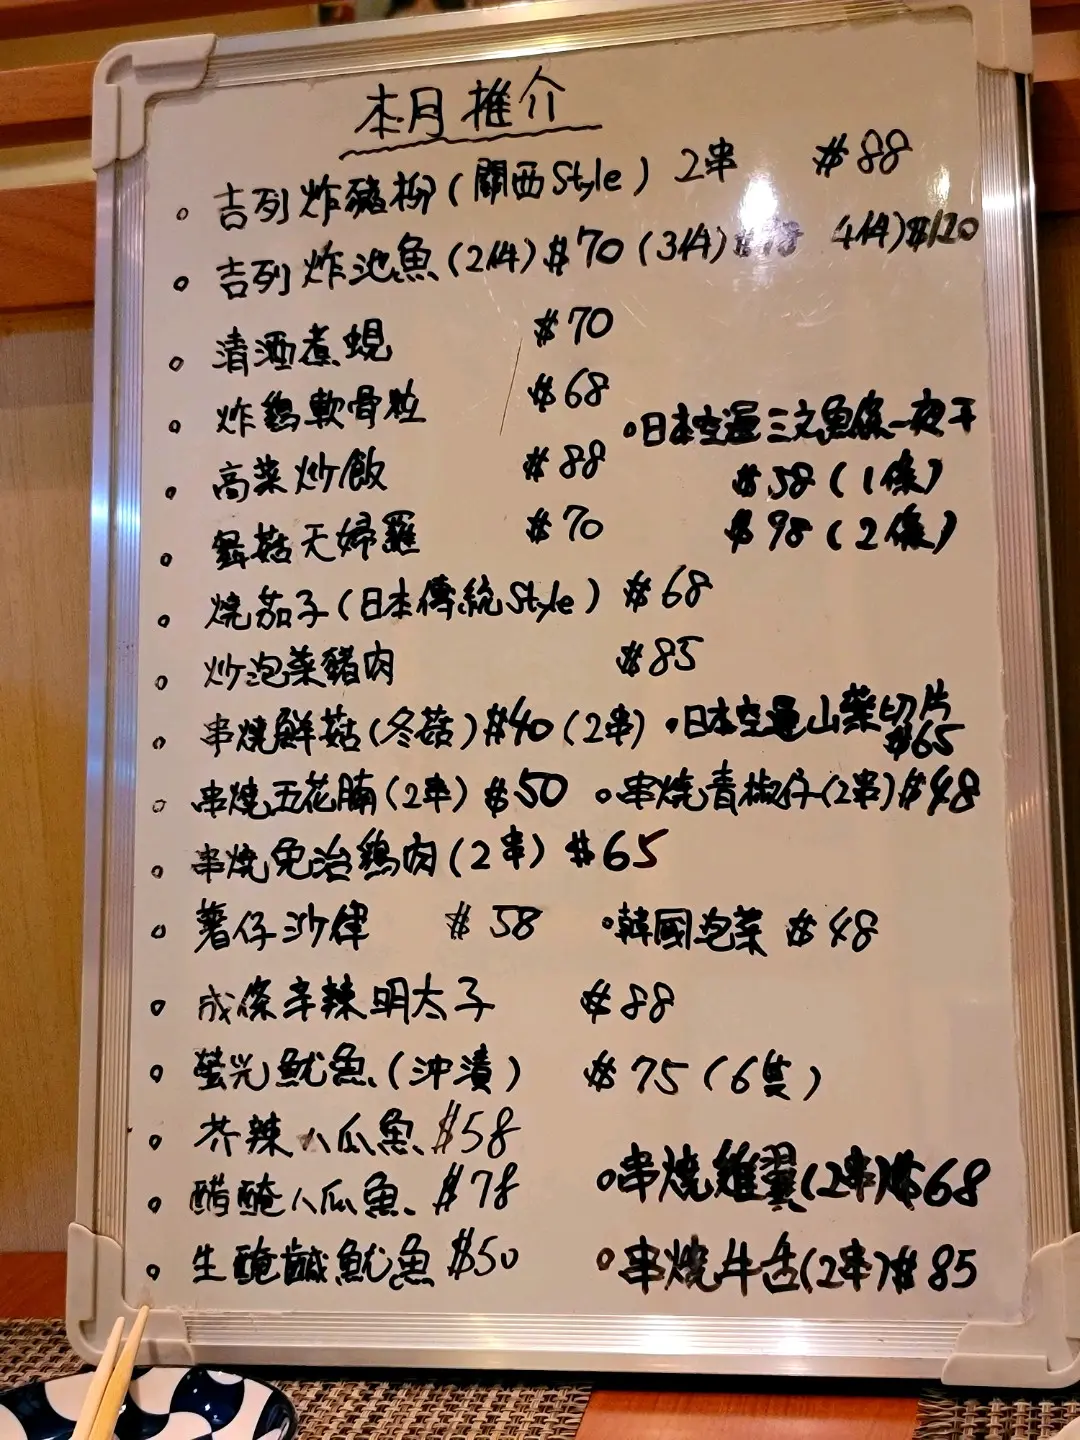 本月推介
。吉列炸豬柳(關西Style) 2串 $88
。吉列炸池魚(2件)$70 (3件) 4件)$120
。清酒煮蜆 $70
。炸鷄軟骨粒 $68
。日本空運三文魚條一夜干
$58 (1條)
$98 (2條)
。高菜炒飯 $88
。舞菇天婦羅 $70
。燒茄子(日本傳統Style) $68
。炒泡菜豬肉 $85
。串燒鮮菇(冬菇)$40 (2串)
。日本空運山藥切片
$65
。串燒五花腩(2串) $50 。串燒青椒仔(2串)$48
。串燒免治鷄肉(2串) $65
。薯仔沙律 $58 。韓國泡菜 $48
。成條辛辣明太子 $88
。螢光魷魚(沖漬) $75 (6隻)
。芥辣八爪魚 $58
。醋醃八爪魚 $78
。串燒雞翼(2串)$68
。生醃鹹魷魚 $50
。串燒牛舌(2串)$85